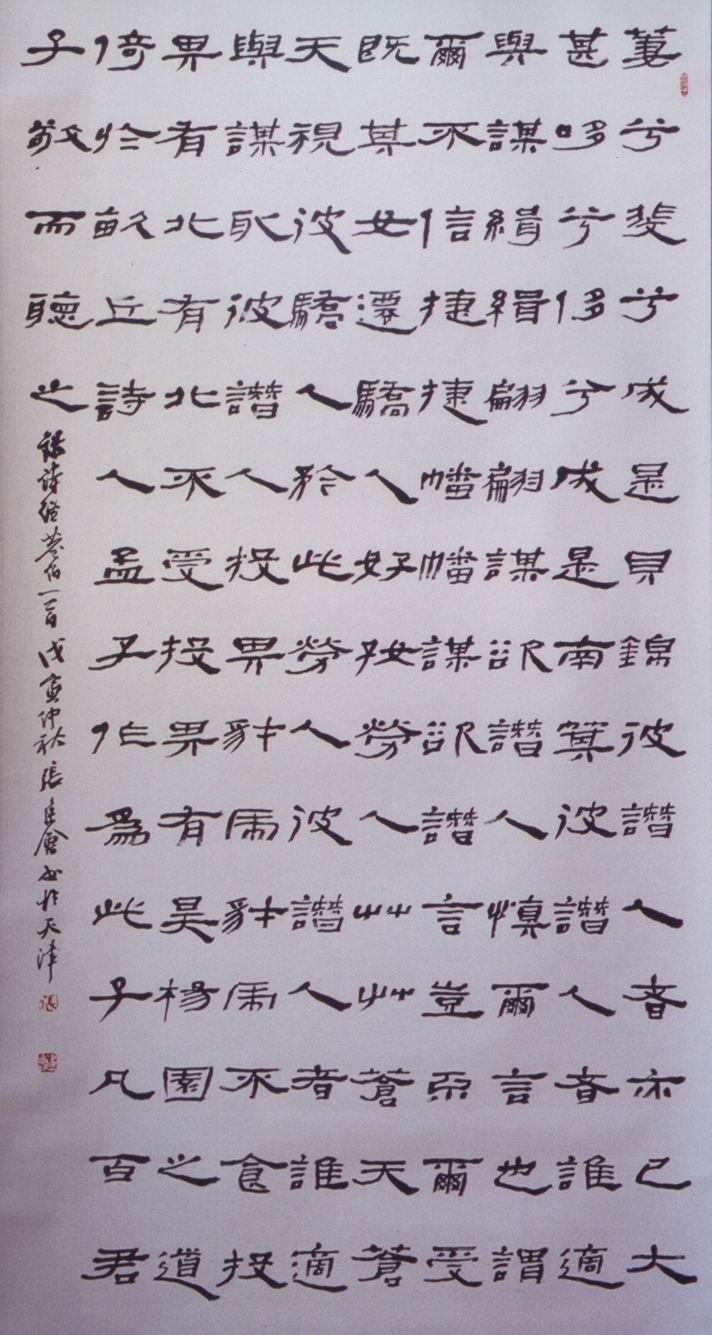 萋兮斐兮成是貝錦彼譖人者亦已大
甚哆兮侈兮成是南箕彼譖人者誰適
與謀緝緝翩翩謀欲譖人慎爾言也謂
爾不信捷捷幡幡謀欲譖言豈不爾受
既其女遷驕人好好勞人艸艸蒼天蒼
天視彼驕人矜此勞人彼譖人者誰適
與謀取彼譖人投畀豺虎豺虎不食投
畀有北有北不受投畀有昊楊園之道
倚於畝丘詩人孟子作為此子凡百君
子敬而聽之
錄詩經巷伯一首戊寅仲秋張建會書於天津